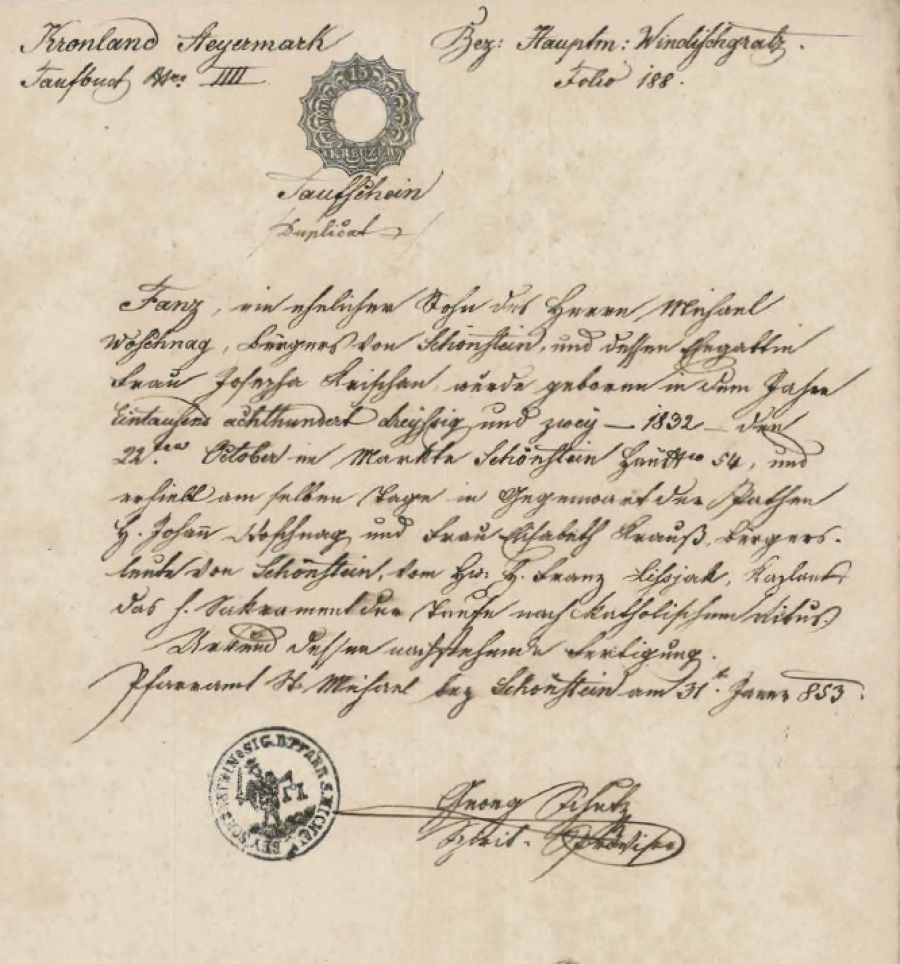 Kronland Steyermark
Bez: Hauptm: Windischgratz.
Taufbuch Nro. IIII
Folio 188.
15
KREUZER
Taufschein
Duplicat
Fanz, ein ehelicher Sohn des Herrn Michael
Woschnag, Bürgers von Schönstein, und dessen Ehegattin
Frau Josepha Krischan, wurde geboren in dem Jahre
Eintausend achthundert dreyssig und zwey — 1832 — den
22ten October im Markte Schönstein Haus Nro 54, und
erhielt am selben Tage in Gegenwart der Pathen
H. Johann Woschnag und Frau Elisabeth Krauß, Bürgers-
leute von Schönstein, vom Hw: H. Franz Kaplan
das h. Sakrament der Taufe nach katholischem Ritus.
Urkund dessen nachstehende Fertigung.
Pfarramt St. Michael bey Schönstein am 31t. Jänner 853.
SIG. D. PFARR S. MICHA BEY SCHONSTEIN
Georg Schutz
Provisor